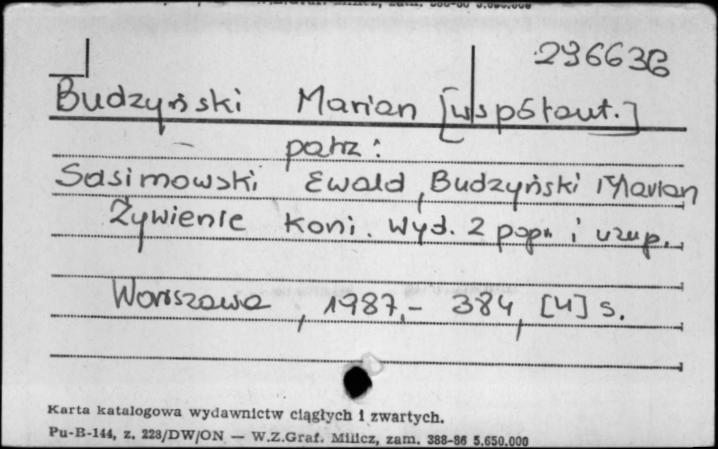 296636
Budzyński Marian [współaut.]
patrz:
Sasimowski Ewald, Budzyński Marian
Żywienie koni. Wyd. 2 popr. i uzup.
Warszawa, 1987.- 384, [4] s.
Karta katalogowa wydawnictw ciągłych i zwartych.
Pu-B-144, z. 228/DW/ON — W.Z.Graf. Milicz, zam. 388-86 5.650.000